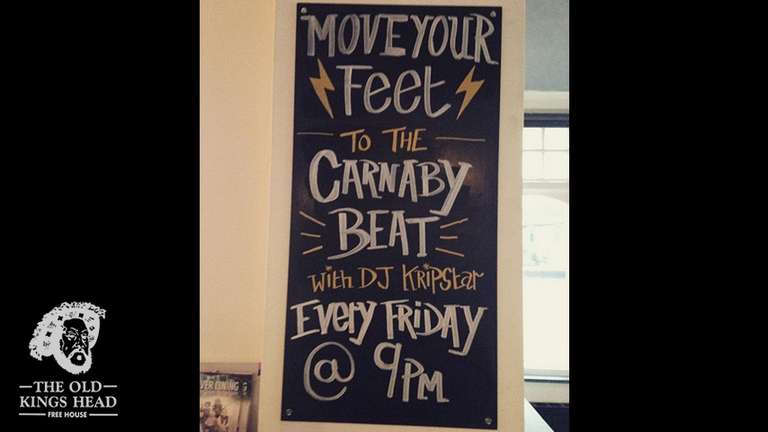 MOVE YOUR
Feet
TO THE
CARNABY
BEAT
with DJ KRIPStar
EVERY FRIDAY
@ 9PM
THE OLD
KINGS HEAD
FREE HOUSE